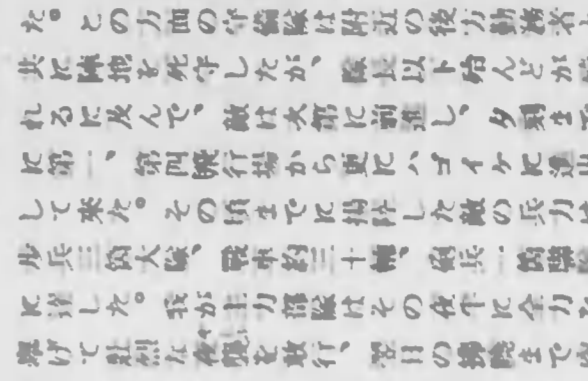 た。この方面の守備隊は附近の後方勤務者
共に陣地を死守したが、隊長以下殆んどが
れるに及んで、敵は次第に前進し、夕刻まで
に第一、第四飛行場から更にハゴイケに進出
して来た。その頃までに揚陸した敵の兵力
歩兵三箇大隊、戦車約三十輛、砲兵一箇
に達した。我が主力部隊はその夜半に全力
挙げて壮烈な夜襲を敢行、翌日の拂暁まで